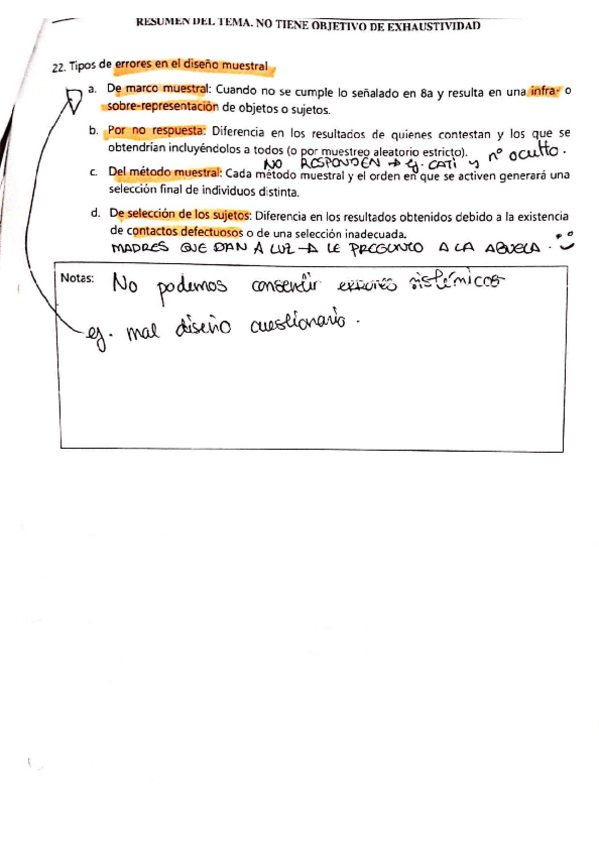 RESUMEN DEL TEMA. NO TIENE OBJETIVO DE EXHAUSTIVIDAD
22. Tipos de errores en el diseño muestral
a. De marco muestral: Cuando no se cumple lo señalado en 8a y resulta en una infra- o
sobre-representación de objetos o sujetos.
b. Por no respuesta: Diferencia en los resultados de quienes contestan y los que se
obtendrían incluyéndolos a todos (o por muestreo aleatorio estricto).
NO RESPONDEN → ej. CATI y nº oculto.
c. Del método muestral: Cada método muestral y el orden en que se activen generará una
selección final de individuos distinta.
d. De selección de los sujetos: Diferencia en los resultados obtenidos debido a la existencia
de contactos defectuosos o de una selección inadecuada.
MADRES QUE DAN A LUZ → LE PREGUNTO A LA ABUELA.
Notas: No podemos consentir errores sistémicos
ej. mal diseño cuestionario.